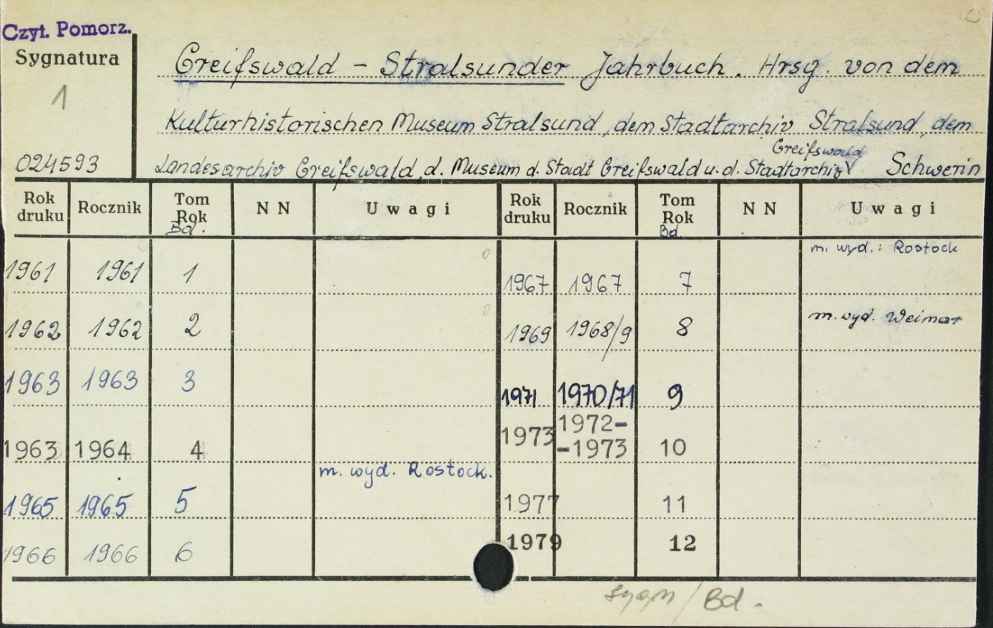 Czyt. Pomorz.
Sygnatura
1
024593
Greifswald - Stralsunder Jahrbuch. Hrsg. von dem
Kulturhistorischen Museum Stralsund, dem Stadtarchiv Stralsund, dem
Greifswald
Landesarchiv Greifswald, d. Museum d. Stadt Greifswald u. d. Stadtarchiv Schwerin
Rok druku Rocznik Tom Rok Bd. NN Uwagi Rok druku Rocznik Tom Rok Bd. NN Uwagi
1961 1961 1
1962 1962 2
1963 1963 3
1963 1964 4
m. wyd. Rostock.
1965 1965 5
1966 1966 6
m. wyd.: Rostock
1967 1967 7
1969 1968/9 8 m. wyd. Weimar
1971 1970/71 9
1973 1972-
-1973 10
1977 11
1979 12
sygn / Bd.